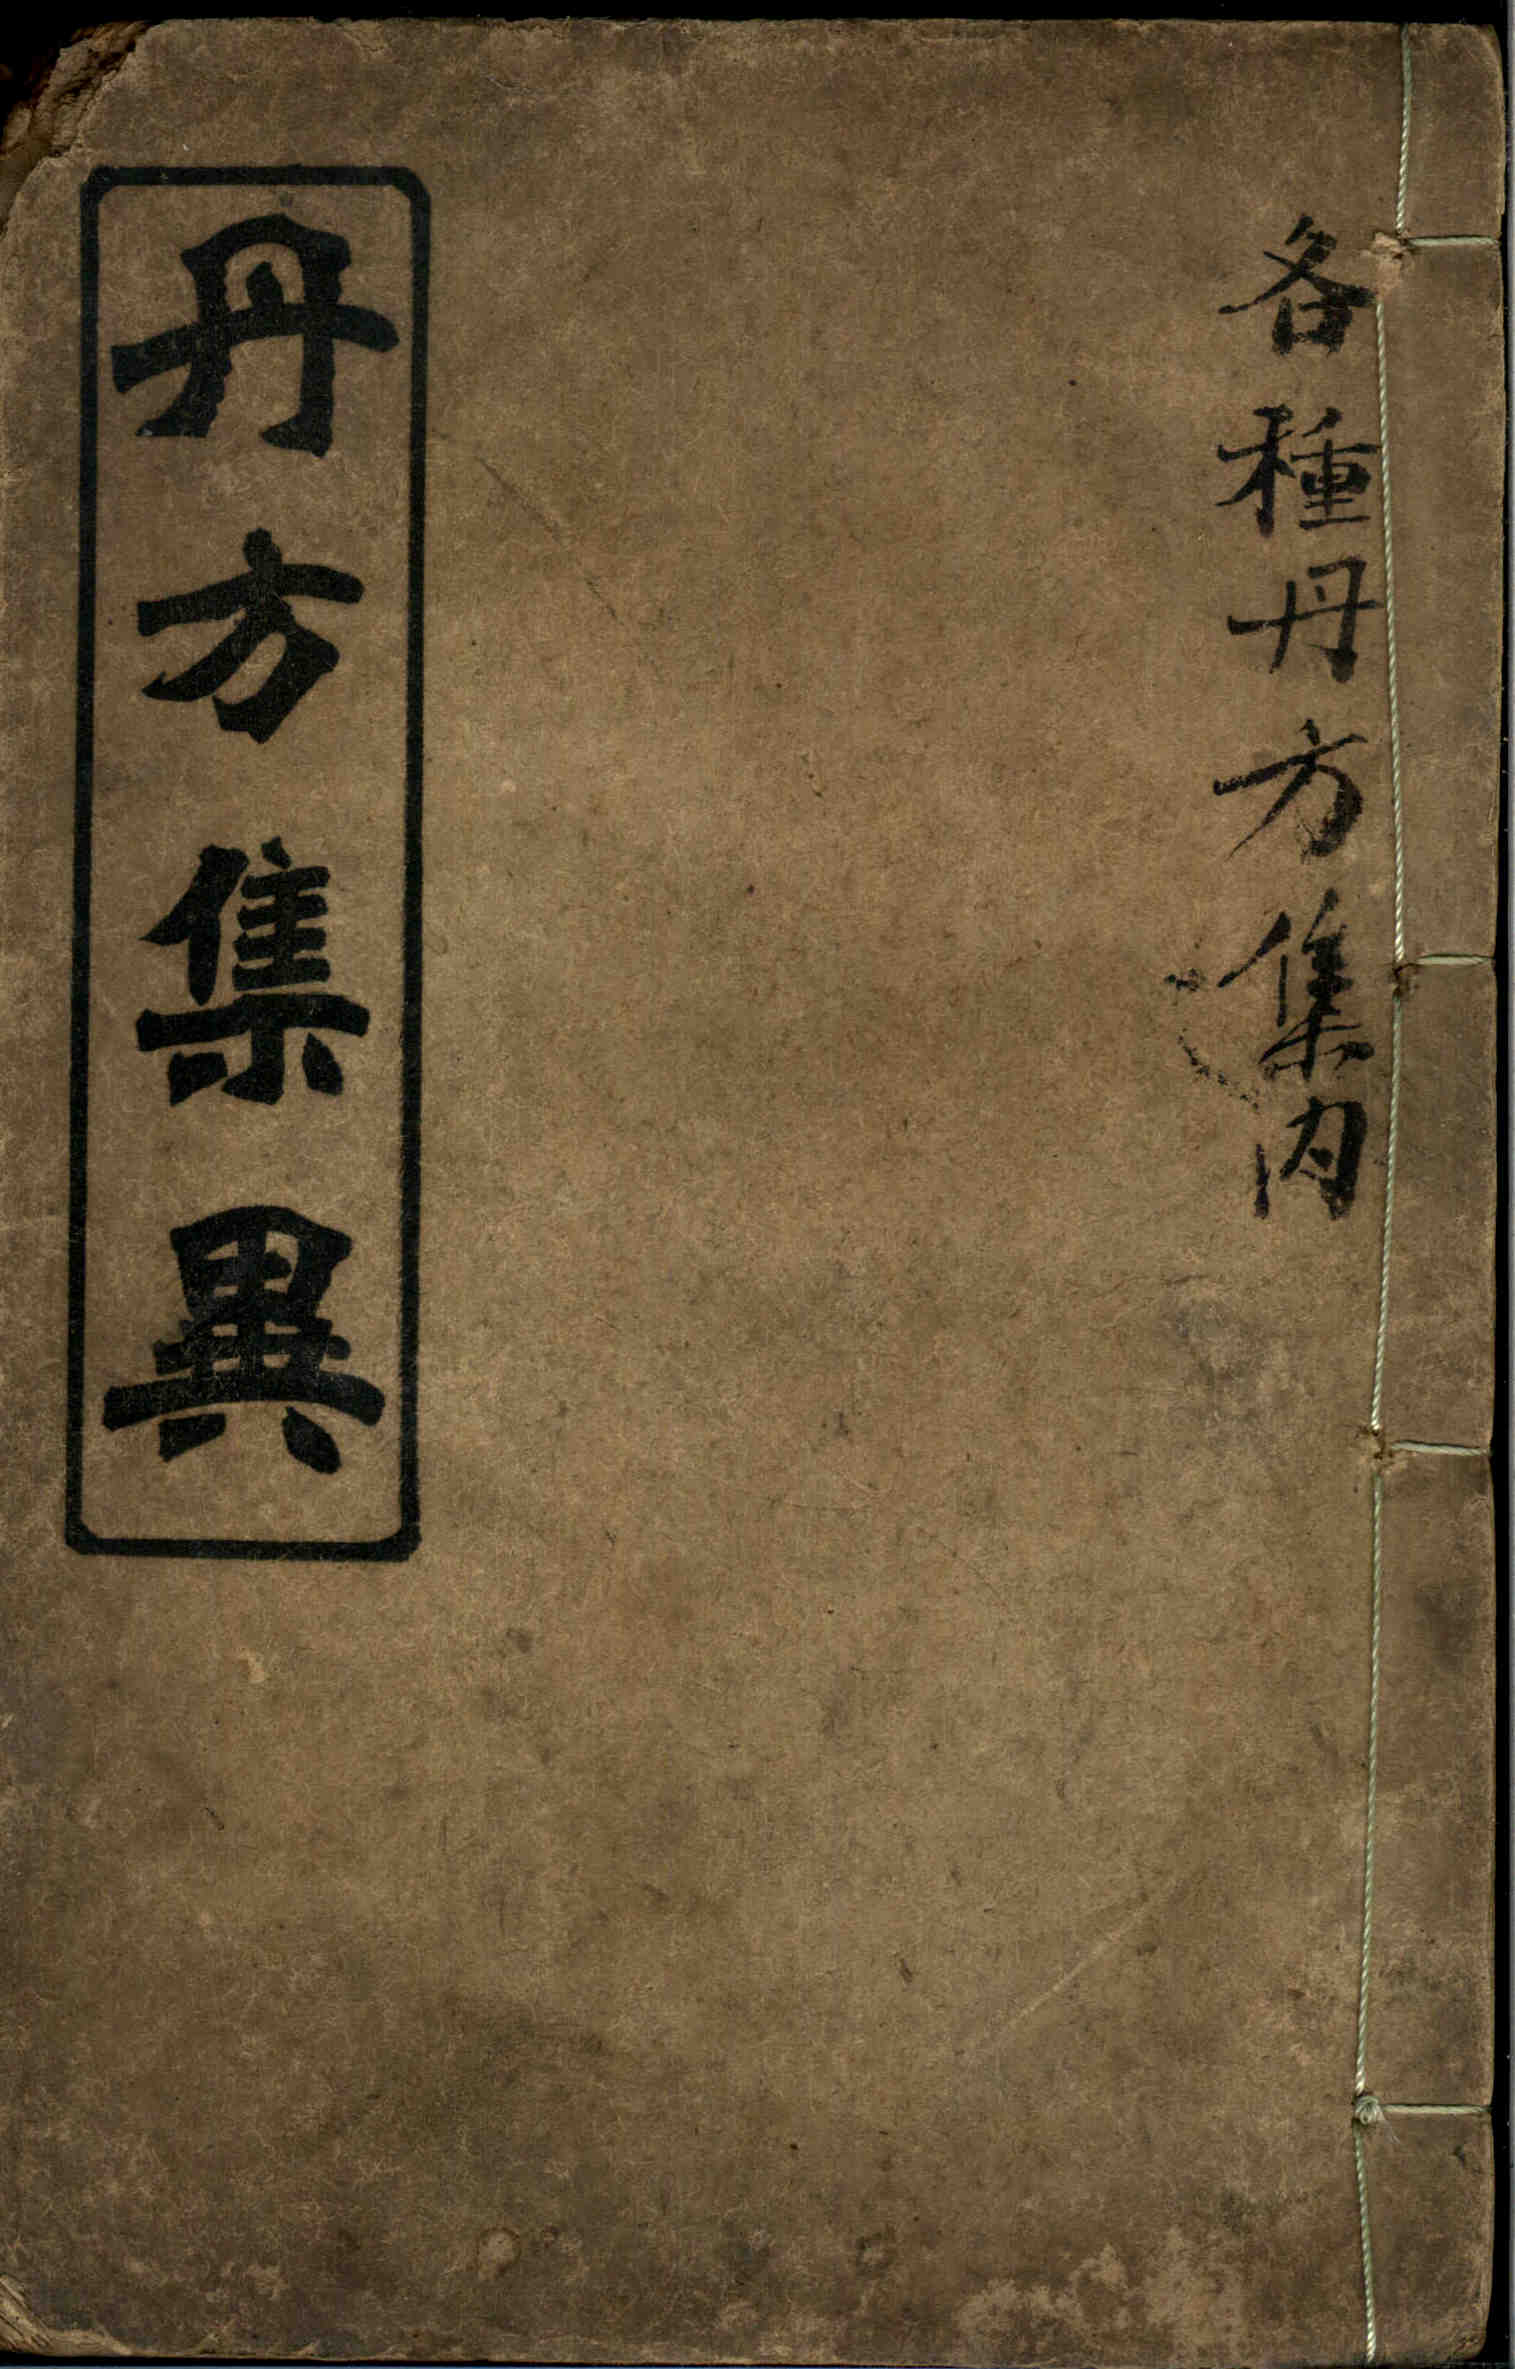 各種丹方集内
丹方集異